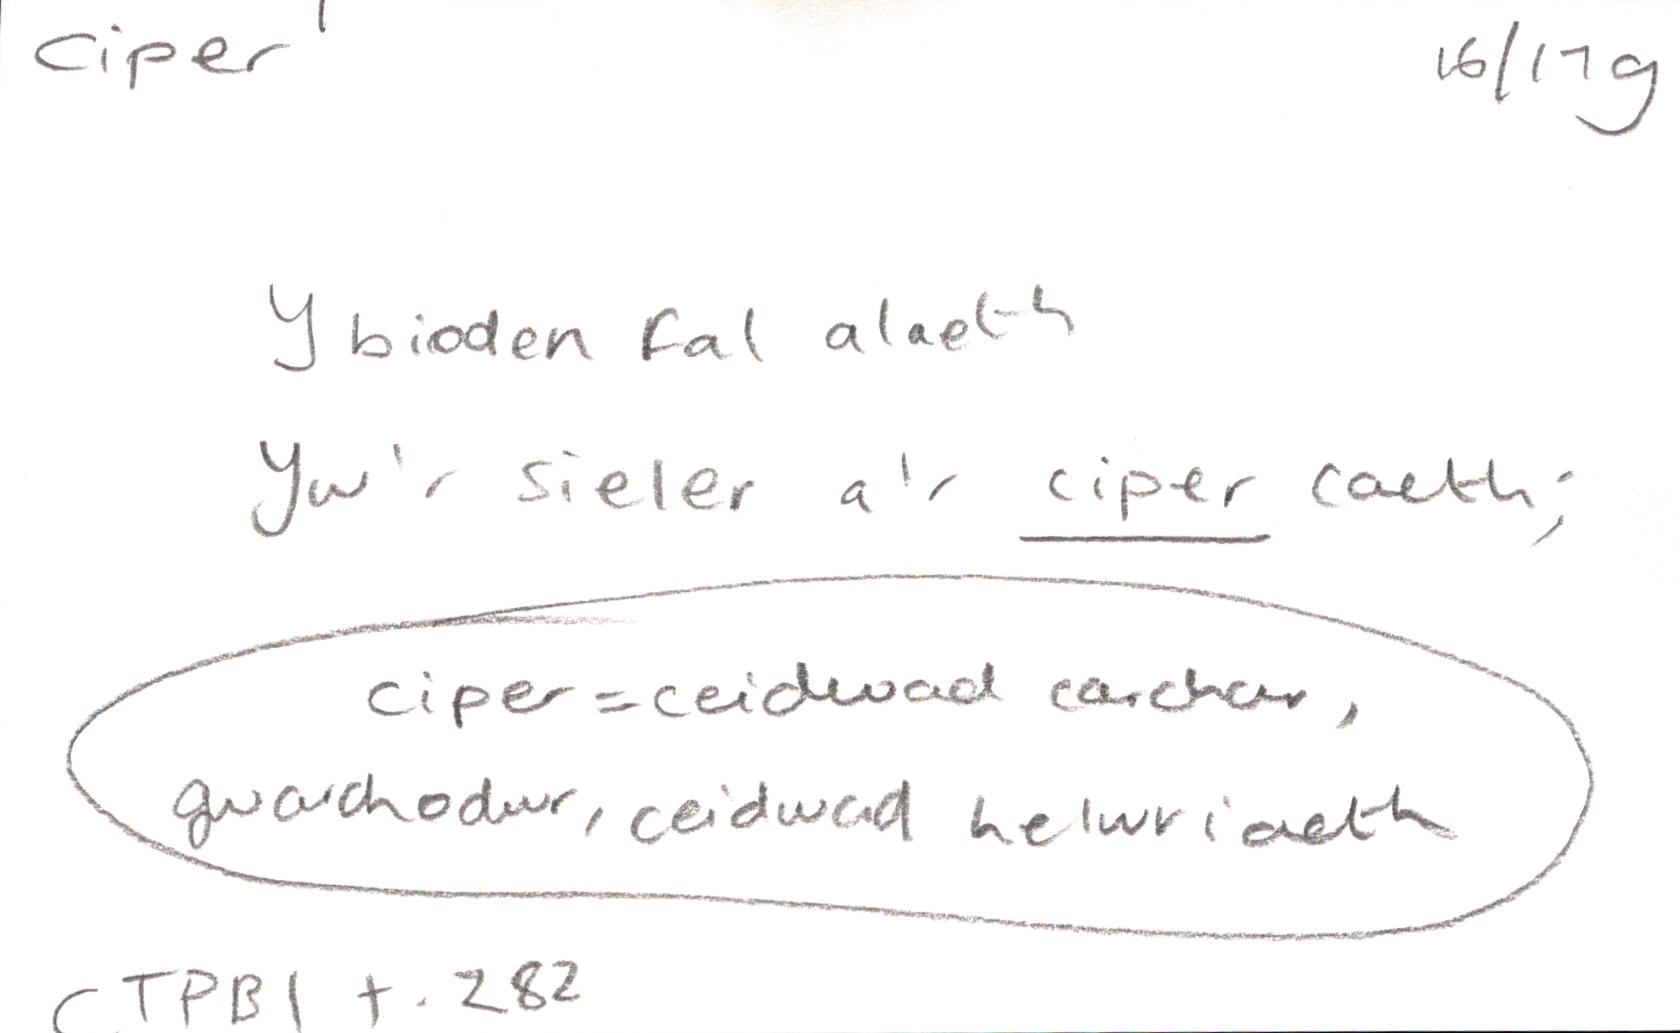 ciper¹ 16/17g
Y bioden fal alaeth
Yw'r sieler a'r ciper caeth;
ciper = ceidwad carchar,
gwarchodwr, ceidwad helwriaeth
CTPB 1 t. 282